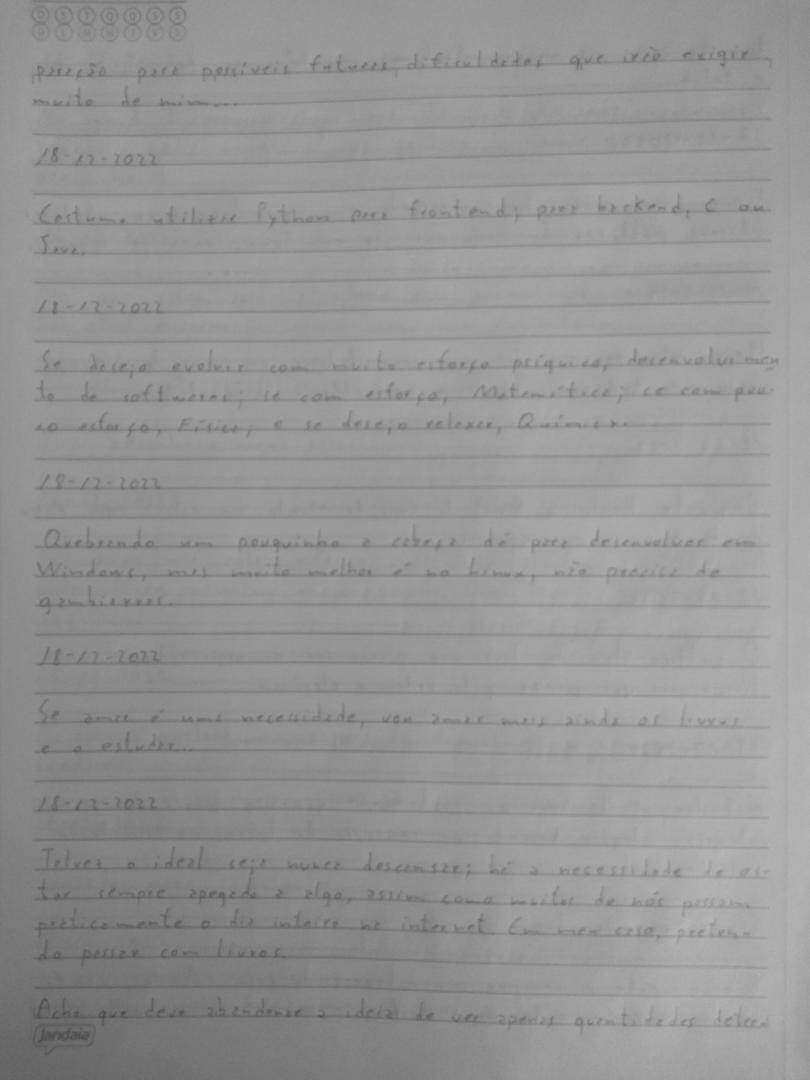 D S T Q Q S S
D L M M J V S
paração para possíveis futuras dificuldades que irão exigir
muito de mim...
18-12-2022
Costumo utilizar Python para frontend; para backend, C ou
Java.
18-12-2022
Se desejo evoluir com muito esforço psíquico, desenvolvimen
to de softwares; se com esforço, Matemática; se com pou-
co esforço, Física; e se desejo relaxar, Química.
18-12-2022
Quebrando um pouquinho a cabeça dá para desenvolver em
Windows, mas muito melhor é no Linux, não precisa de
gambiarras.
18-12-2022
Se amar é uma necessidade, vou amar mais ainda os livros
e o estudar...
18-12-2022
Talvez o ideal seja nunca descansar; há a necessidade de es-
tar sempre apegado a algo, assim como muitos de nós passam
praticamente o dia inteiro na internet. Em meu caso, preten-
do passar com livros.
Acho que devo abandonar a ideia de ver apenas quantidades
jandaia